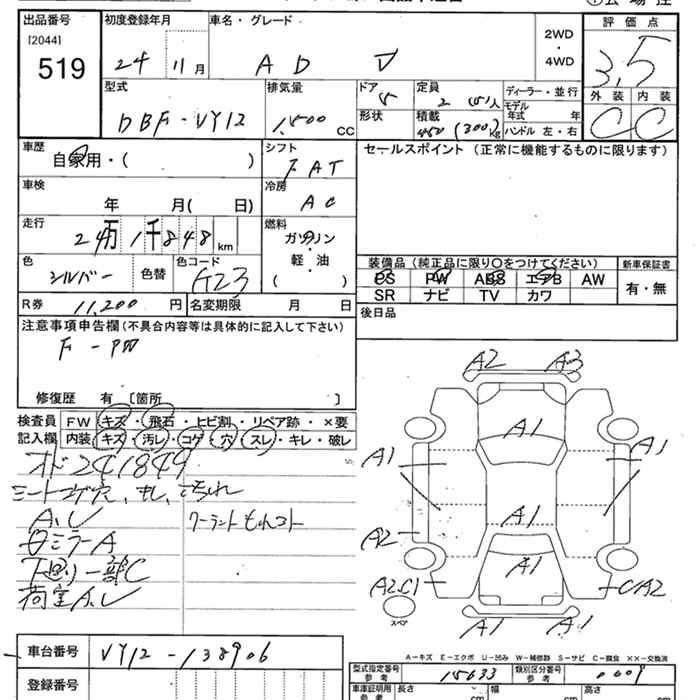 出品番号
[2044]
519
初度登録年月
24 11 月
車名・グレード
AD V
2WD
・
4WD
評価点
3.5
外装 内装
C C
型式
DBF-VY12
排気量
1,500 CC
ドア
5
形状
定員
2 (5)人
積載
450 (300)kg
ディーラー・並行
モデル年式 年
ハンドル 左・右
車歴
自家用・( )
シフト
F AT
セールスポイント (正常に機能するものに限ります)
車検
年 月( 日)
冷房
AC
走行
24万1千848 km
燃料
ガソリン
軽・油
( )
色
シルバー
色替
色コード
装備品 (純正品に限り○をつけてください)
PS PW ABS エアB AW
SR ナビ TV カワ
新車保証書
有・無
R券 11,200 円
名変期限 月 日
後日品
注意事項申告欄 (不具合内容等は具体的に記入して下さい)
F-PW
修復歴 有 [箇所 ]
検査員記入欄
FW キズ・飛石・ヒビ割・リペア跡・×要
内装 キズ・汚レ・コゲ・穴・スレ・キレ・破レ
オド241849
シートコゲ穴、
A.U
クーラントもれコト
ミラーA
下回り一部C
荷室A.U
A2 A3
A1
A1 A1
A1
A2
A1
A2C1 CA2
スペア
A1 A1
A-キズ E-エクボ U-凹み W-補修跡 S-サビ C-腐食 ××-交換済
車台番号 VY12-138906
登録番号
型式指定番号 参考 15633
類別区分番号 参考 0009
車庫証明用 参考
長さ cm
幅 cm
高さ cm